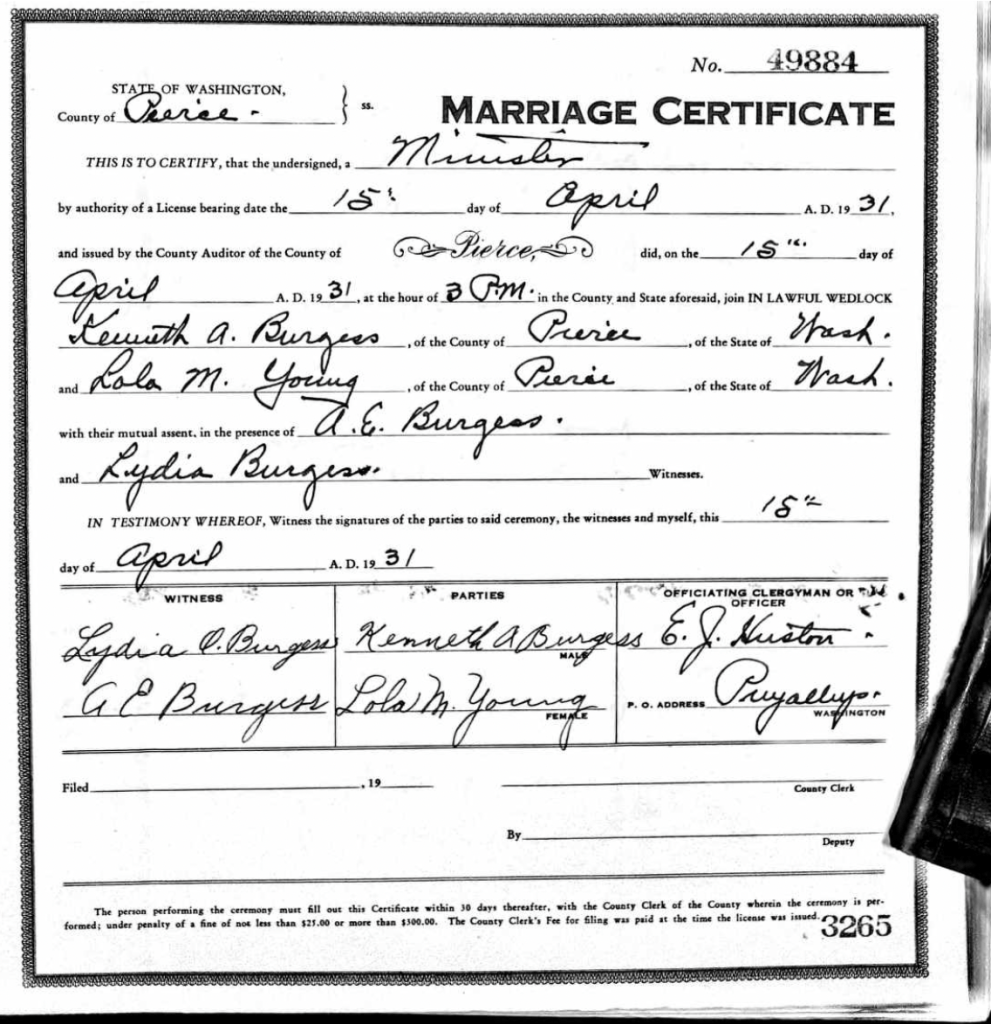 No. 49884
STATE OF WASHINGTON,
County of Pierce - } ss.
MARRIAGE CERTIFICATE
THIS IS TO CERTIFY, that the undersigned, a Minister
by authority of a License bearing date the 15" day of April A. D. 19 31,
and issued by the County Auditor of the County of Pierce, did, on the 15th day of
April A. D. 19 31, at the hour of 3 P.M. in the County and State aforesaid, join IN LAWFUL WEDLOCK
Kenneth A. Burgess, of the County of Pierce, of the State of Wash.
and Lola M. Young, of the County of Pierce, of the State of Wash.
with their mutual assent, in the presence of A. E. Burgess.
and Lydia Burgess. Witnesses.
IN TESTIMONY WHEREOF, Witness the signatures of the parties to said ceremony, the witnesses and myself, this 15th
day of April A. D. 19 31
WITNESS PARTIES OFFICIATING CLERGYMAN OR
OFFICER
Lydia O. Burgess Kenneth A Burgess E. J. Huston
MALE
A E Burgess Lola M. Young P. O. ADDRESS Puyallup.
FEMALE WASHINGTON
Filed , 19
County Clerk
By
Deputy
The person performing the ceremony must fill out this Certificate within 30 days thereafter, with the County Clerk of the County wherein the ceremony is per-
formed; under penalty of a fine of not less than $25.00 or more than $300.00. The County Clerk's Fee for filing was paid at the time the license was issued.
3265